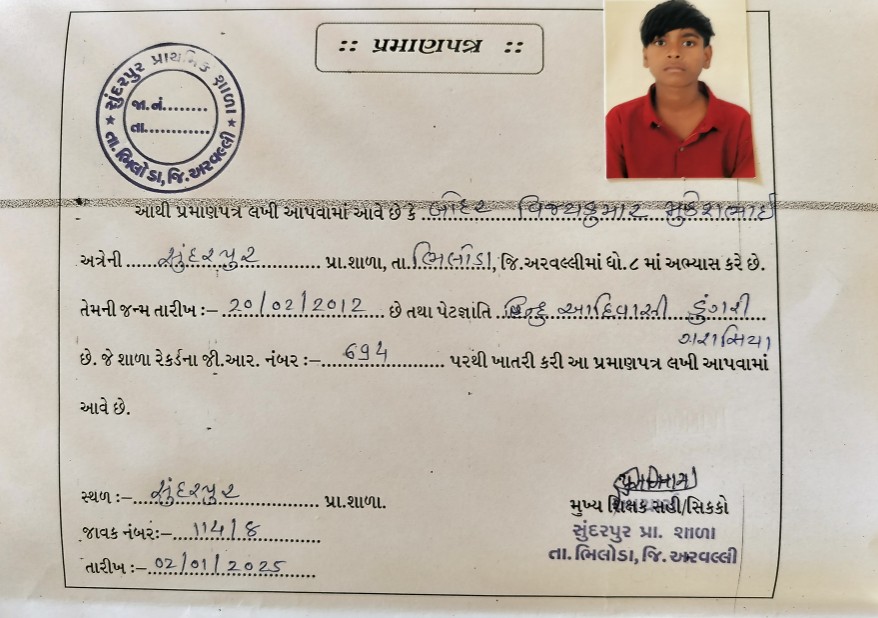 :: પ્રમાણપત્ર ::
સુંદરપુર પ્રાથમિક શાળા
જા.નં.........
તા............
★ તા.ભિલોડા, જિ.અરવલ્લી ★
આથી પ્રમાણપત્ર લખી આપવામાં આવે છે કે વિજયકુમાર મુકેશભાઇ
અત્રેની સુંદરપુર પ્રા.શાળા, તા. ભિલોડા, જિ.અરવલ્લીમાં ધો.૮ માં અભ્યાસ કરે છે.
તેમની જન્મ તારીખ :- 20/02/2012 છે તથા પેટજ્ઞાતિ હિન્દુ આદિવાસી ડુંગરી
ગરાસિયા
છે. જે શાળા રેકર્ડના જી.આર. નંબર :- 694 પરથી ખાતરી કરી આ પ્રમાણપત્ર લખી આપવામાં
આવે છે.
સ્થળ :- સુંદરપુર પ્રા.શાળા.
જાવક નંબર:- 114/8
તારીખ :- 02/01/2025
મુખ્ય શિક્ષક સહી/સિકકો
સુંદરપુર પ્રા. શાળા
તા.ભિલોડા, જિ.અરવલ્લી